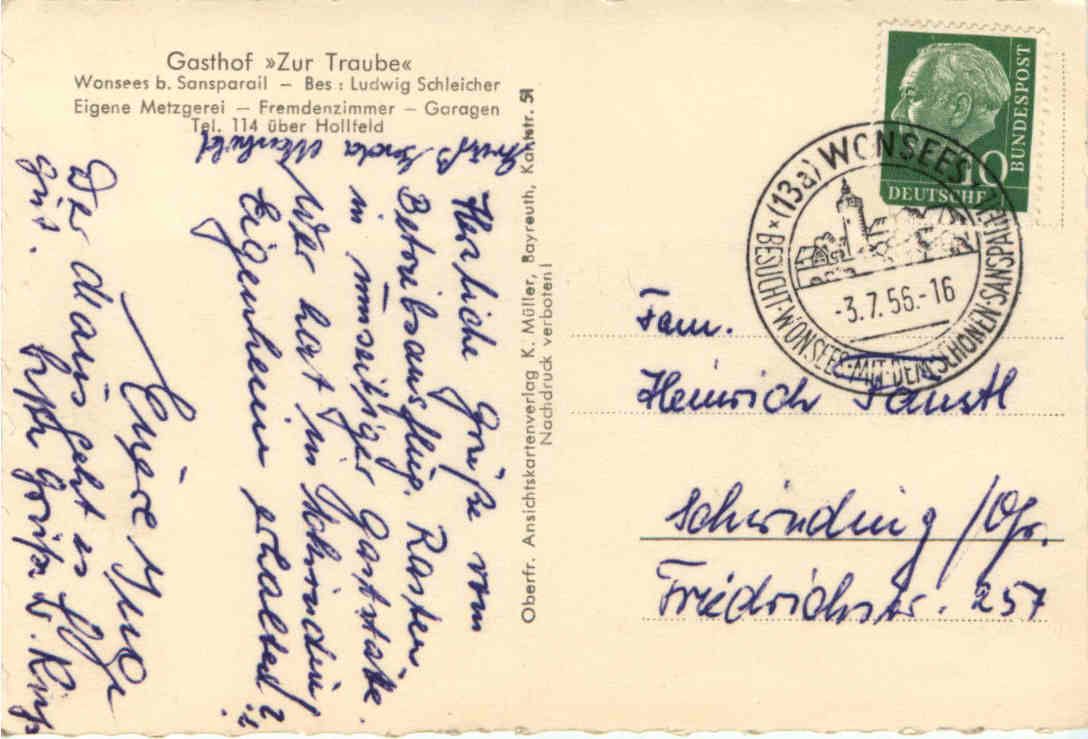 Gasthof »Zur Traube«
Wonsees b. Sansparail — Bes: Ludwig Schleicher
Eigene Metzgerei — Fremdenzimmer — Garagen
Tel. 114 über Hollfeld
Herzliche Grüße vom
Betriebsausflug. Rasten
in einer Gaststube.
Wer hat in Schirnding
Eigenheim erhalten?
Eure Inge
Der Maus geht es
gut.
Gruß Gerda
Oberfr. Ansichtskartenverlag K. Müller, Bayreuth, Kantstr. 51
Nachdruck verboten!
DEUTSCHE
BUNDESPOST
10
(13a) WONSEES
BESUCHT·WONSEES·MIT·DEM·SCHÖNEN·SANSPAREIL
-3.7.56.-16
Fam.
Heinrich
Schirnding / Ofr.
Friedrichstr. 257